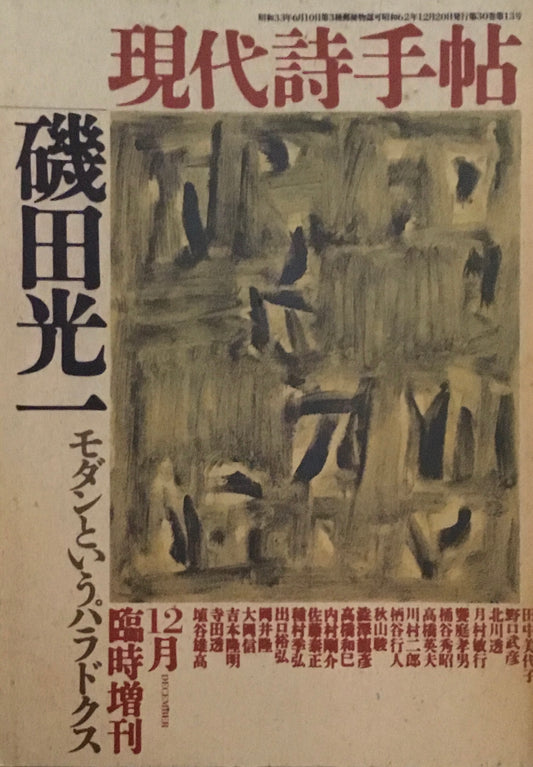 昭和33年6月10日第3種郵便物認可昭和62年12月20日発行第30巻第13号
現代詩手帖
磯田光一
モダンというパラドクス
田中美代子
野口武彦
北川透
月村敏行
饗庭孝男
桶谷秀昭
高橋英夫
川村二郎
柄谷行人
秋山駿
澁澤龍彦
高橋和巳
内村剛介
佐藤泰正
種村季弘
出口裕弘
岡井隆
大岡信
吉本隆明
寺田透
埴谷雄高
12月
DECEMBER
臨時増刊